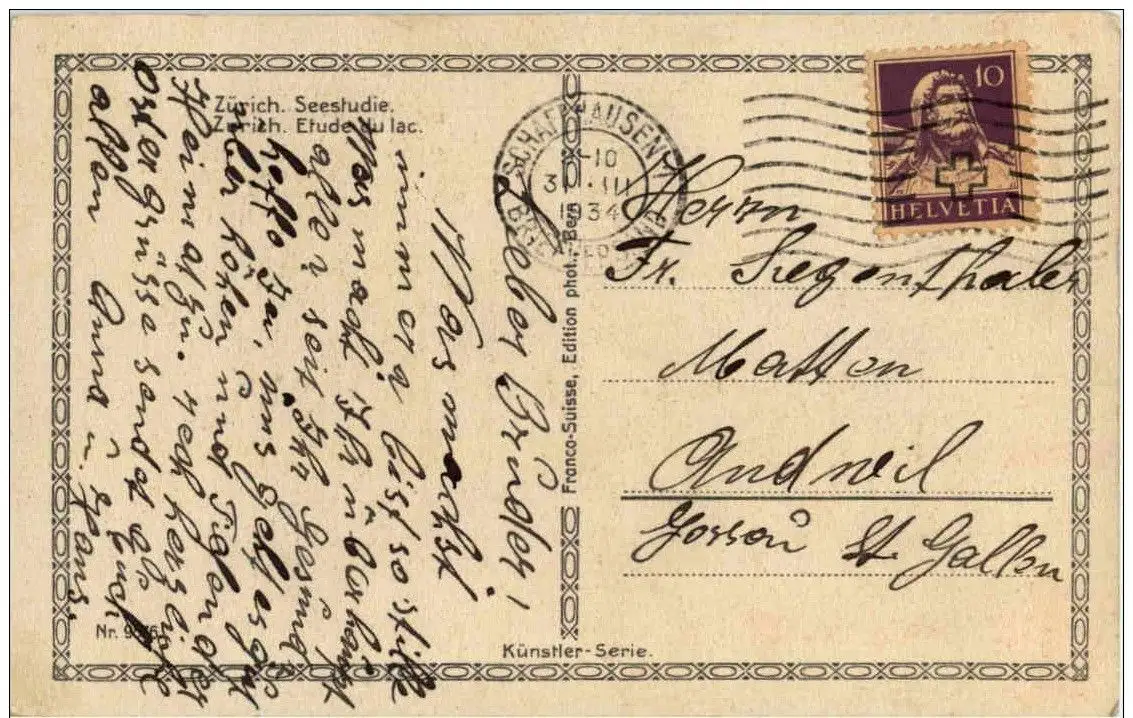 Zürich. Seestudie.
Zürich. Etude du lac.
Lieber Brüder!
Was machst
immer, bist so stille
Was macht Ihr überhaupt
alle, seit Ihr gesund
hoffe ja, uns geht es gut
Heimatzü. rech herzliche
Ostergrüsse sendet Euch
allen Anna u. Hans.
Nr. 
Franco-Suisse, Edition phot., Bern
Künstler-Serie.
SCHAFFHAUSEN 1
-10
31.III
1934
BRIEFVERSAND
10
HELVETIA
Herrn
Fr. Siegenthaler
Matten
Andwil
Gossau St. Gallen